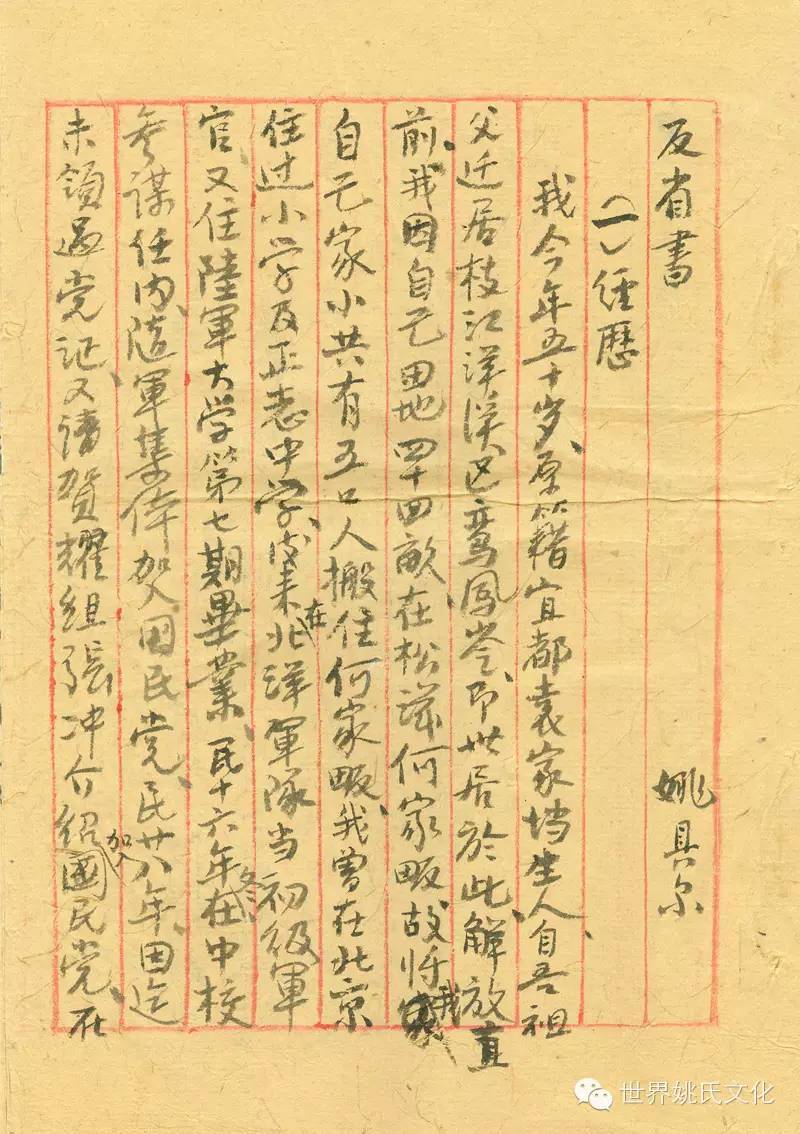 反省書 姚具尔
（一）经歷
我今年五十岁、原籍宜都袁家垱生人、自吾祖
父迁居枝江洋溪区鸾凤、即世居於此、解放直
前、我因自己田地四十四畝、在松滋何家畈、故將我
自己家小共有五口人搬住何家畈、我曾在北京
住过小学及正志中学、后来在北洋軍隊当初级軍
官、又住陸軍大学第七期畢業、民十六年冬在中校
参谋任内、随軍集体加入国民党、民廿八年、因迄
未領過党证、又請賀耀组張冲介绍加入國民党、在
世界姚氏文化